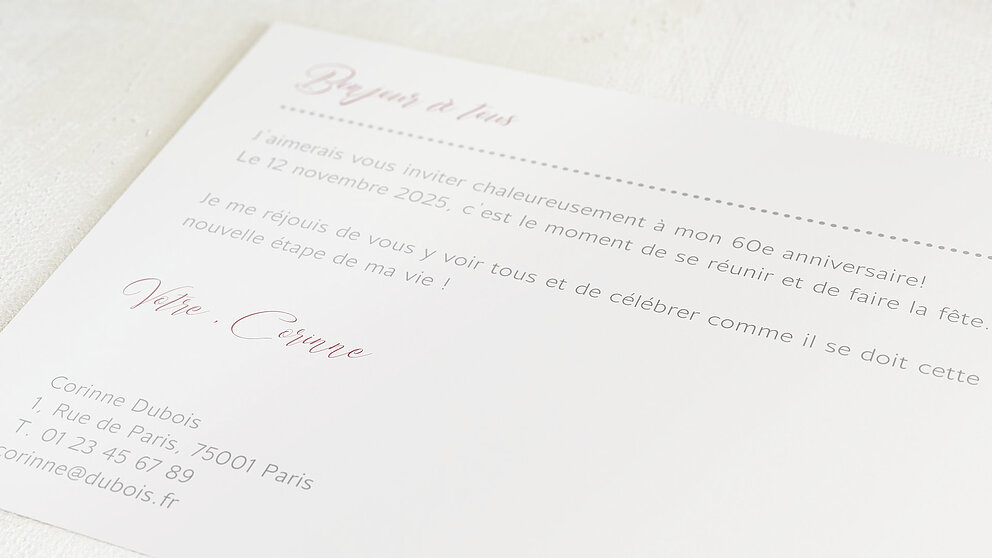 Bonjour à tous
J'aimerais vous inviter chaleureusement à mon 60e anniversaire!
Le 12 novembre 2025, c'est le moment de se réunir et de faire la fête.
Je me réjouis de vous y voir tous et de célébrer comme il se doit cette
nouvelle étape de ma vie !
Votre , Corinne
Corinne Dubois
1, Rue de Paris, 75001 Paris
T. 01 23 45 67 89
corinne@dubois.fr